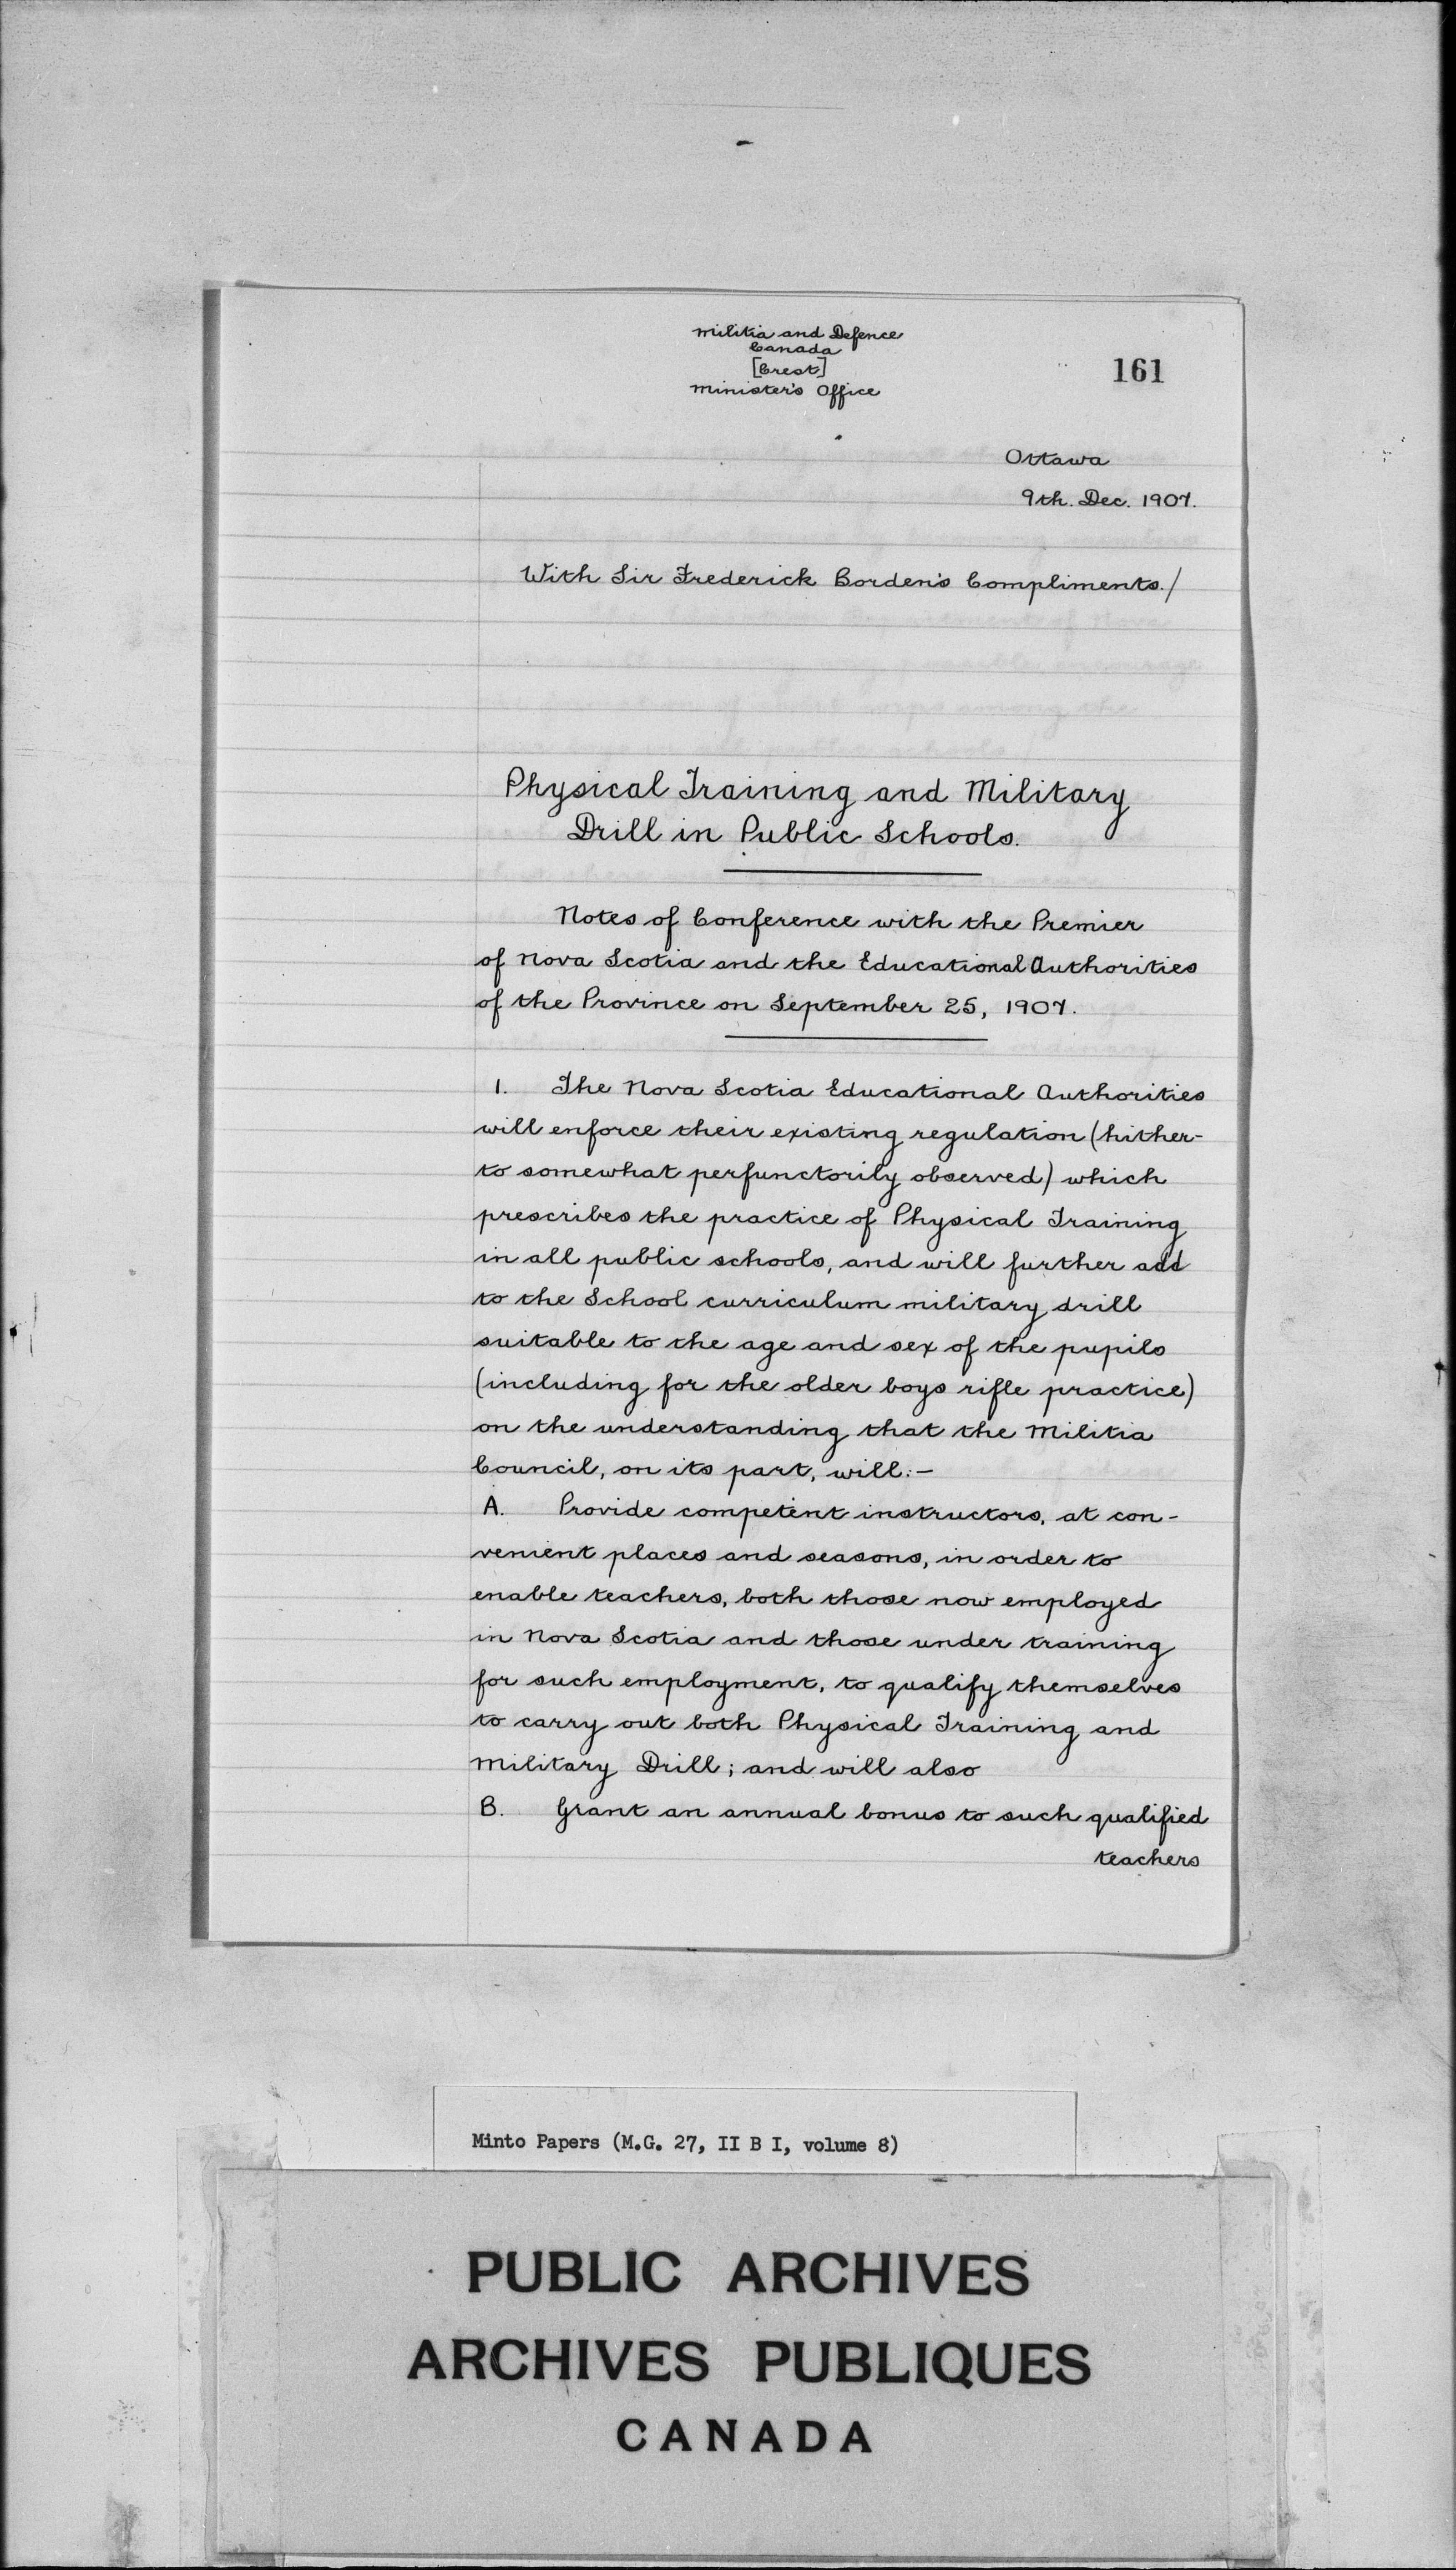 Militia and Defence
Canada
[Crest]
Minister's Office
161
Ottawa
9th. Dec. 1907.
With Sir Frederick Borden's Compliments./
Physical Training and Military
Drill in Public Schools.
Notes of Conference with the Premier
of Nova Scotia and the Educational Authorities
of the Province on September 25, 1907.
1. The Nova Scotia Educational Authorities
will enforce their existing regulation (hither-
to somewhat perfunctorily observed) which
prescribes the practice of Physical Training
in all public schools, and will further add
to the School curriculum military drill
suitable to the age and sex of the pupils
(including for the older boys rifle practice)
on the understanding that the Militia
Council, on its part, will:-
A. Provide competent instructors, at con-
venient places and seasons, in order to
enable teachers, both those now employed
in Nova Scotia and those under training
for such employment, to qualify themselves
to carry out both Physical Training and
Military Drill; and will also
B. Grant an annual bonus to such qualified
teachers
Minto Papers (M.G. 27, II B I, volume 8)
PUBLIC ARCHIVES
ARCHIVES PUBLIQUES
CANADA